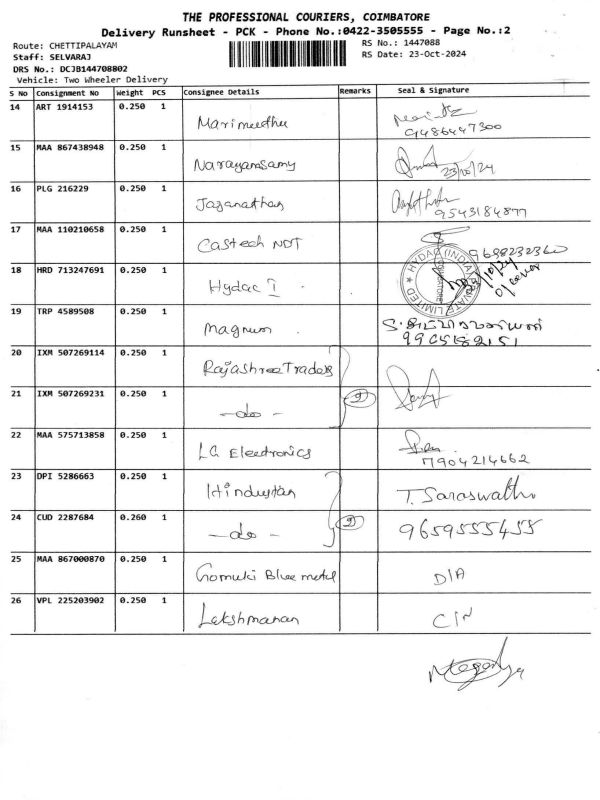 THE PROFESSIONAL COURIERS, COIMBATORE
Delivery Runsheet - PCK - Phone No.:0422-3505555 - Page No.:2
Route: CHETTIPALAYAM
RS No.: 1447088
Staff: SELVARAJ
RS Date: 23-Oct-2024
DRS No.: DCJB144708802
Vehicle: Two Wheeler Delivery
S No Consignment No Weight PCS Consignee Details Remarks Seal & Signature
14 ART 1914153 0.250 1 Marimuthu
9486447300
15 MAA 867438948 0.250 1 Narayanasamy 23/10/24
16 PLG 216229 0.250 1 Jaganathan
9543184877
17 MAA 110210658 0.250 1 Castech NDT 9698232360
18 HRD 713247691 0.250 1 Hydac I HYDAC (INDIA) PRIVATE LIMITED COIMBATORE
19 TRP 4589508 0.250 1 Magnum
20 IXM 507269114 0.250 1 Rajashree Traders
21 IXM 507269231 0.250 1 -do- 2
22 MAA 575713858 0.250 1 LG Electronics
7904214662
23 DPI 5286663 0.250 1 Hindustan T. Saraswathi
24 CUD 2287684 0.260 1 -do- 2 9659555455
25 MAA 867000870 0.250 1 Gomuki Blue metal D/A
26 VPL 225203902 0.250 1 Lakshmanan C/N